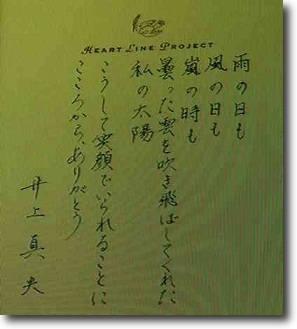 HEART LINE PROJECT
雨の日も
風の日も
嵐の時も
曇った雲を吹き飛ばしてくれた
私の太陽
こうして笑顔でいられることに
こころから、ありがとう
井上真央